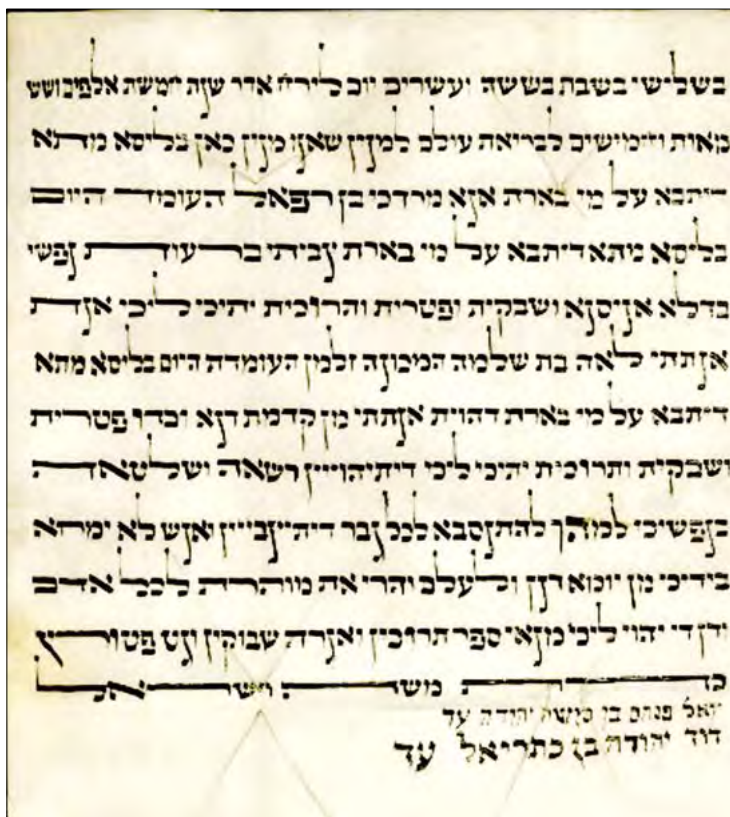 בשלישי בשבת בששה ועשרים יום לירח אדר שנת חמשת אלפים ושש
מאות וחמישים לבריאת עולם למנין שאנו מנין כאן בליסא מתא
דיתבא על מי בארת אנא מרדכי בן רפאל העומד היום
בליסא מתא דיתבא על מי בארת צביתי ברעות נפשי
בדלא אניסנא ושבקית ופטרית ותרוכית יתיכי ליכי אנת
אנתתי לאה בת שלמה המכונה זלמן העומדת היום בליסא מתא
דיתבא על מי בארת דהוית אנתתי מן קדמת דנא וכדו פטרית
ושבקית ותרוכית יתיכי ליכי דיתיהוייין רשאה ושלטאה
בנפשיכי למהך להתנסבא לכל גבר דיתיצבייין ואנש לא ימחא
בידיכי מן יומא דנן ולעלם והרי את מותרת לכל אדם
ודן די יהוי ליכי מנאי ספר תרוכין ואגרת שבוקין וגט פטורין
כדת משה וישראל
בן יהודה עד
דוד יהודה בן כתריאל עד